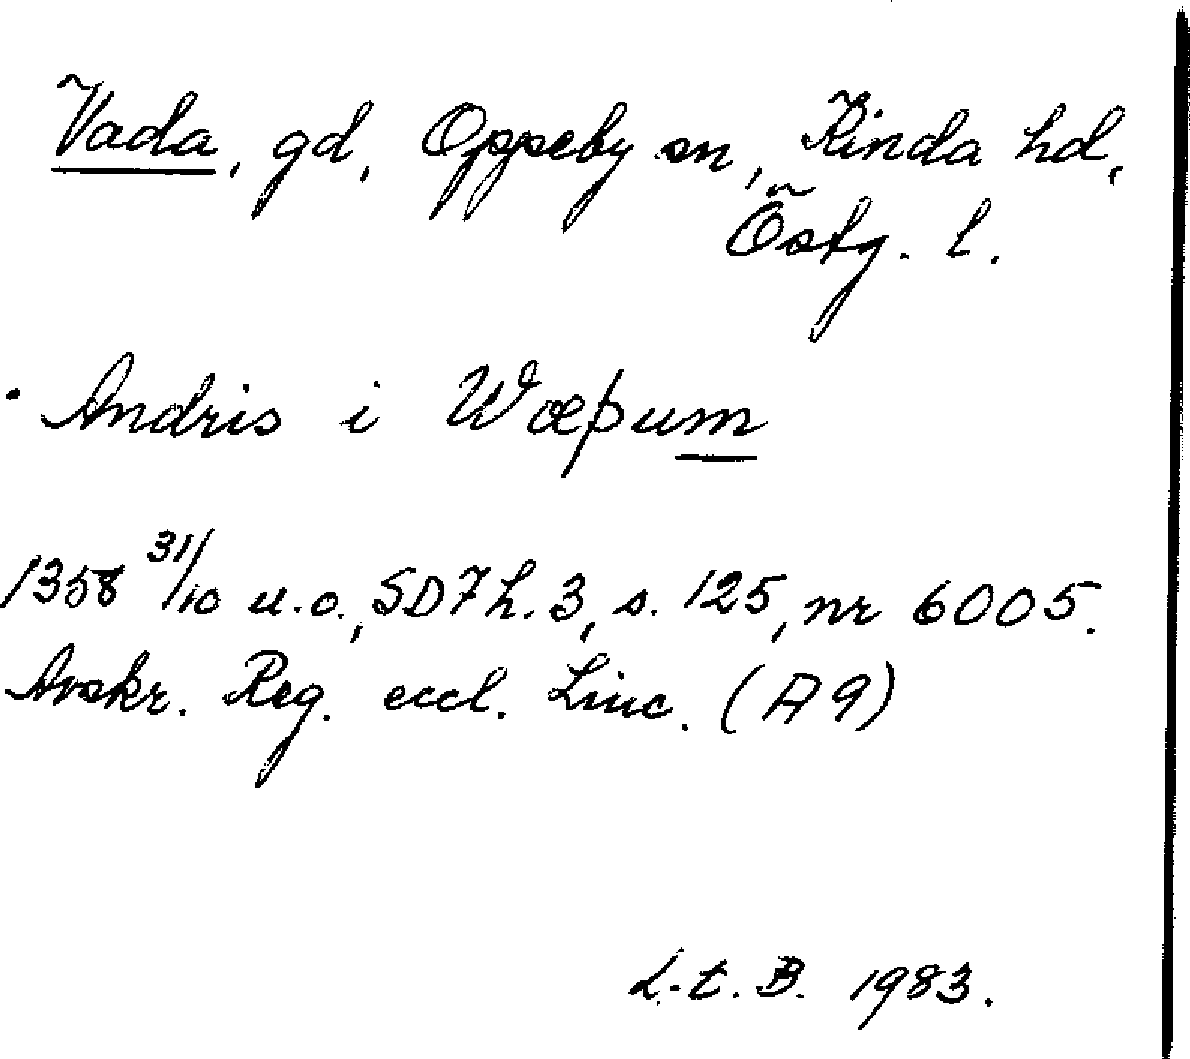 Vada, gd, Oppeby sn, Kinda hd,
Östg. l.
Andris i Wæþum
1358 31/10 u.o., SD7 h. 3, s. 125, nr 6005.
Avskr. Reg. eccl. Linc. (A9)
L.t.B. 1983.